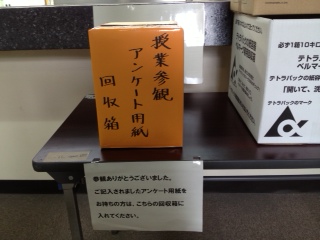 授業参観
アンケート用紙
回収箱
参観ありがとうございました。
ご記入されましたアンケート用紙を
お持ちの方は、こちらの回収箱に
入れてください。
必ず1箱10キロ
テトラ
ベルマー
テトラパックの紙
「開いて、洗
テトラパックのマーク